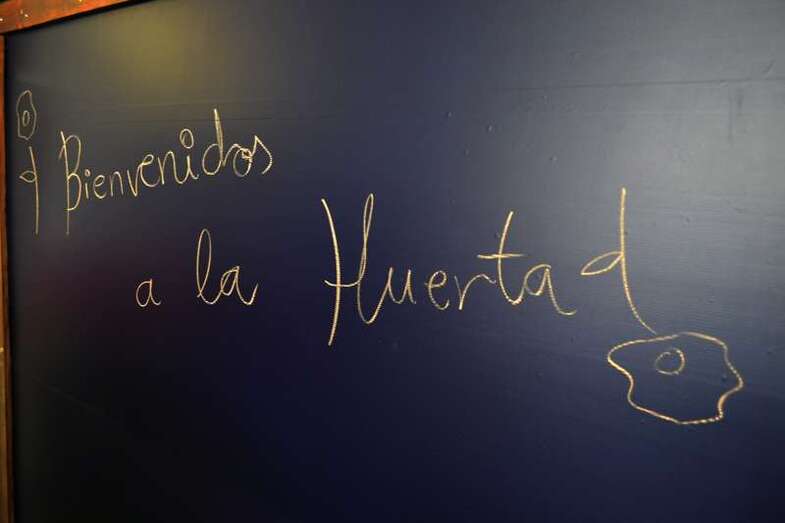 ¡Bienvenidos
a la Huerta!